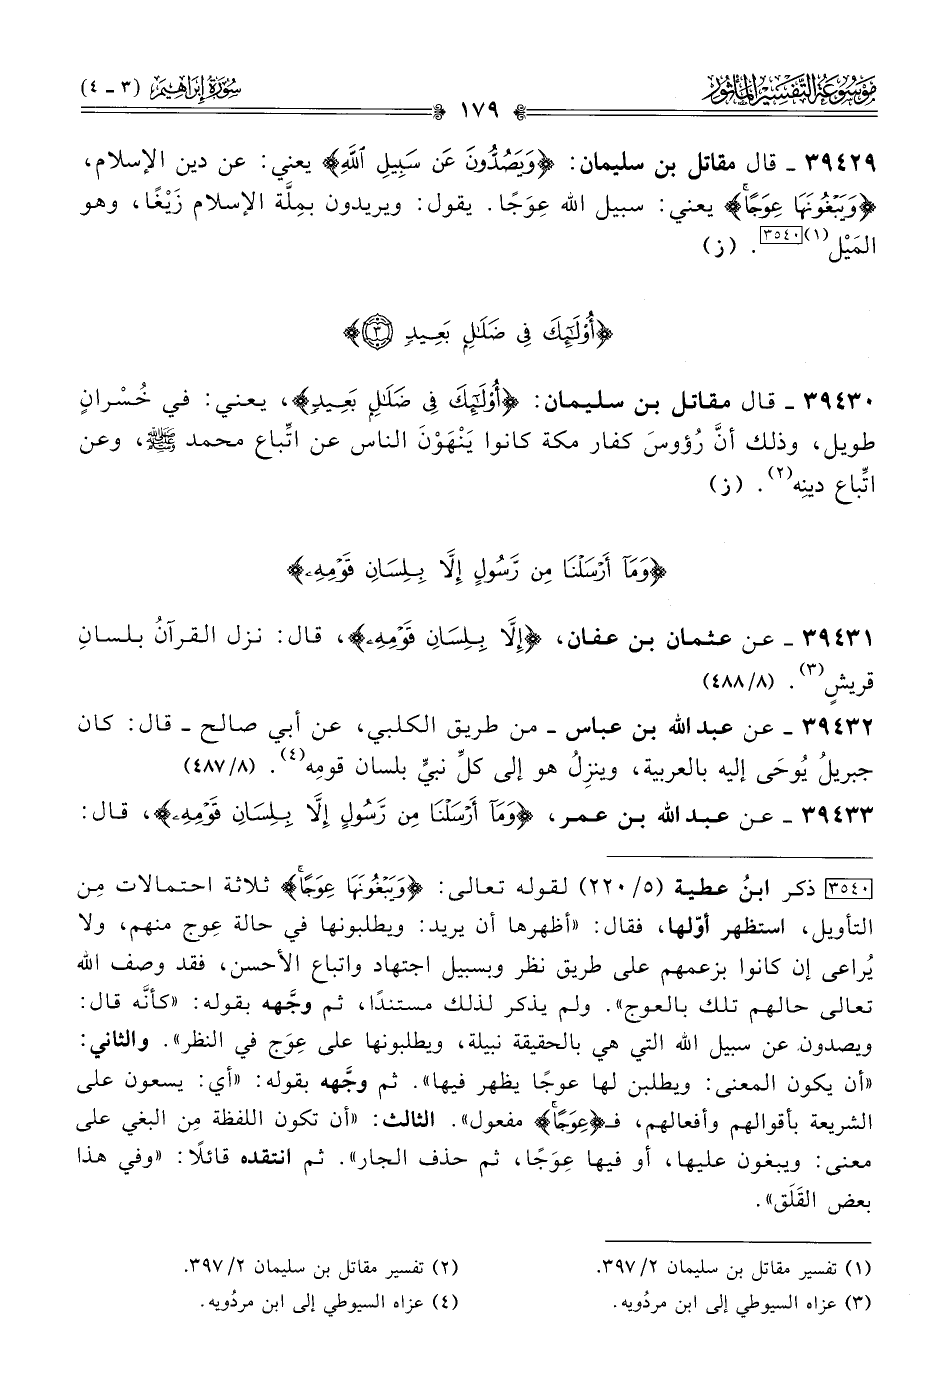 مَوْسُوعَةُ التَّفْسِيرِ الْمَأْثُورِ
سُورَةُ إِبْرَاهِيمَ (٣ - ٤)
١٧٩
٣٩٤٢٩ - قال مقاتل بن سليمان: ﴿وَيَصُدُّونَ عَن سَبِيلِ ٱللَّهِ﴾ يعني: عن دين الإسلام،
﴿وَيَبْغُونَهَا عِوَجًاۚ﴾ يعني: سبيل الله عِوَجًا. يقول: ويريدون بمِلَّة الإسلام زَيْغًا، وهو
المَيْل(١)[٣٥٤٠]. (ز)
﴿أُوْلَٰٓئِكَ فِى ضَلَٰلٍۭ بَعِيدٍ ٣﴾
٣٩٤٣٠ - قال مقاتل بن سليمان: ﴿أُوْلَٰٓئِكَ فِى ضَلَٰلٍۭ بَعِيدٍ﴾، يعني: في خُسْرانٍ
طويل، وذلك أنَّ رُؤوسَ كفار مكة كانوا يَنْهَوْنَ الناس عن اتِّباع محمد ﷺ، وعن
اتِّباع دينِه(٢). (ز)
﴿وَمَآ أَرْسَلْنَا مِن رَّسُولٍ إِلَّا بِلِسَانِ قَوْمِهِۦ﴾
٣٩٤٣١ - عن عثمان بن عفان، ﴿إِلَّا بِلِسَانِ قَوْمِهِۦ﴾، قال: نزل القرآنُ بلسانِ
قريشٍ(٣). (٤٨٨/٨)
٣٩٤٣٢ - عن عبد الله بن عباس - من طريق الكلبي، عن أبي صالح - قال: كان
جبريلُ يُوحَى إليه بالعربية، وينزِلُ هو إلى كلِّ نبيٍّ بلسان قومِه(٤). (٤٨٧/٨)
٣٩٤٣٣ - عن عبد الله بن عمر، ﴿وَمَآ أَرْسَلْنَا مِن رَّسُولٍ إِلَّا بِلِسَانِ قَوْمِهِۦ﴾، قال:
[٣٥٤٠] ذكر ابنُ عطية (٢٢٠/٥) لقوله تعالى: ﴿وَيَبْغُونَهَا عِوَجًاۚ﴾ ثلاثة احتمالات مِن
التأويل، استظهر أوّلها، فقال: «أظهرها أن يريد: ويطلبونها في حالة عِوج منهم، ولا
يُراعى إن كانوا بزعمهم على طريق نظر وبسبيل اجتهاد واتباع الأحسن، فقد وصف الله
تعالى حالهم تلك بالعوج». ولم يذكر لذلك مستندًا، ثم وجَّهه بقوله: «كأنَّه قال:
ويصدون عن سبيل الله التي هي بالحقيقة نبيلة، ويطلبونها على عِوَج في النظر». والثاني:
«أن يكون المعنى: ويطلبن لها عوجًا يظهر فيها». ثم وجَّهه بقوله: «أي: يسعون على
الشريعة بأقوالهم وأفعالهم، فـ﴿عِوَجًاۚ﴾ مفعول». الثالث: «أن تكون اللفظة مِن البغي على
معنى: ويبغون عليها، أو فيها عِوَجًا، ثم حذف الجار». ثم انتقده قائلًا: «وفي هذا
بعض القَلَق».
(١) تفسير مقاتل بن سليمان ٣٩٧/٢.
(٢) تفسير مقاتل بن سليمان ٣٩٧/٢.
(٣) عزاه السيوطي إلى ابن مردُويه.
(٤) عزاه السيوطي إلى ابن مردُويه.